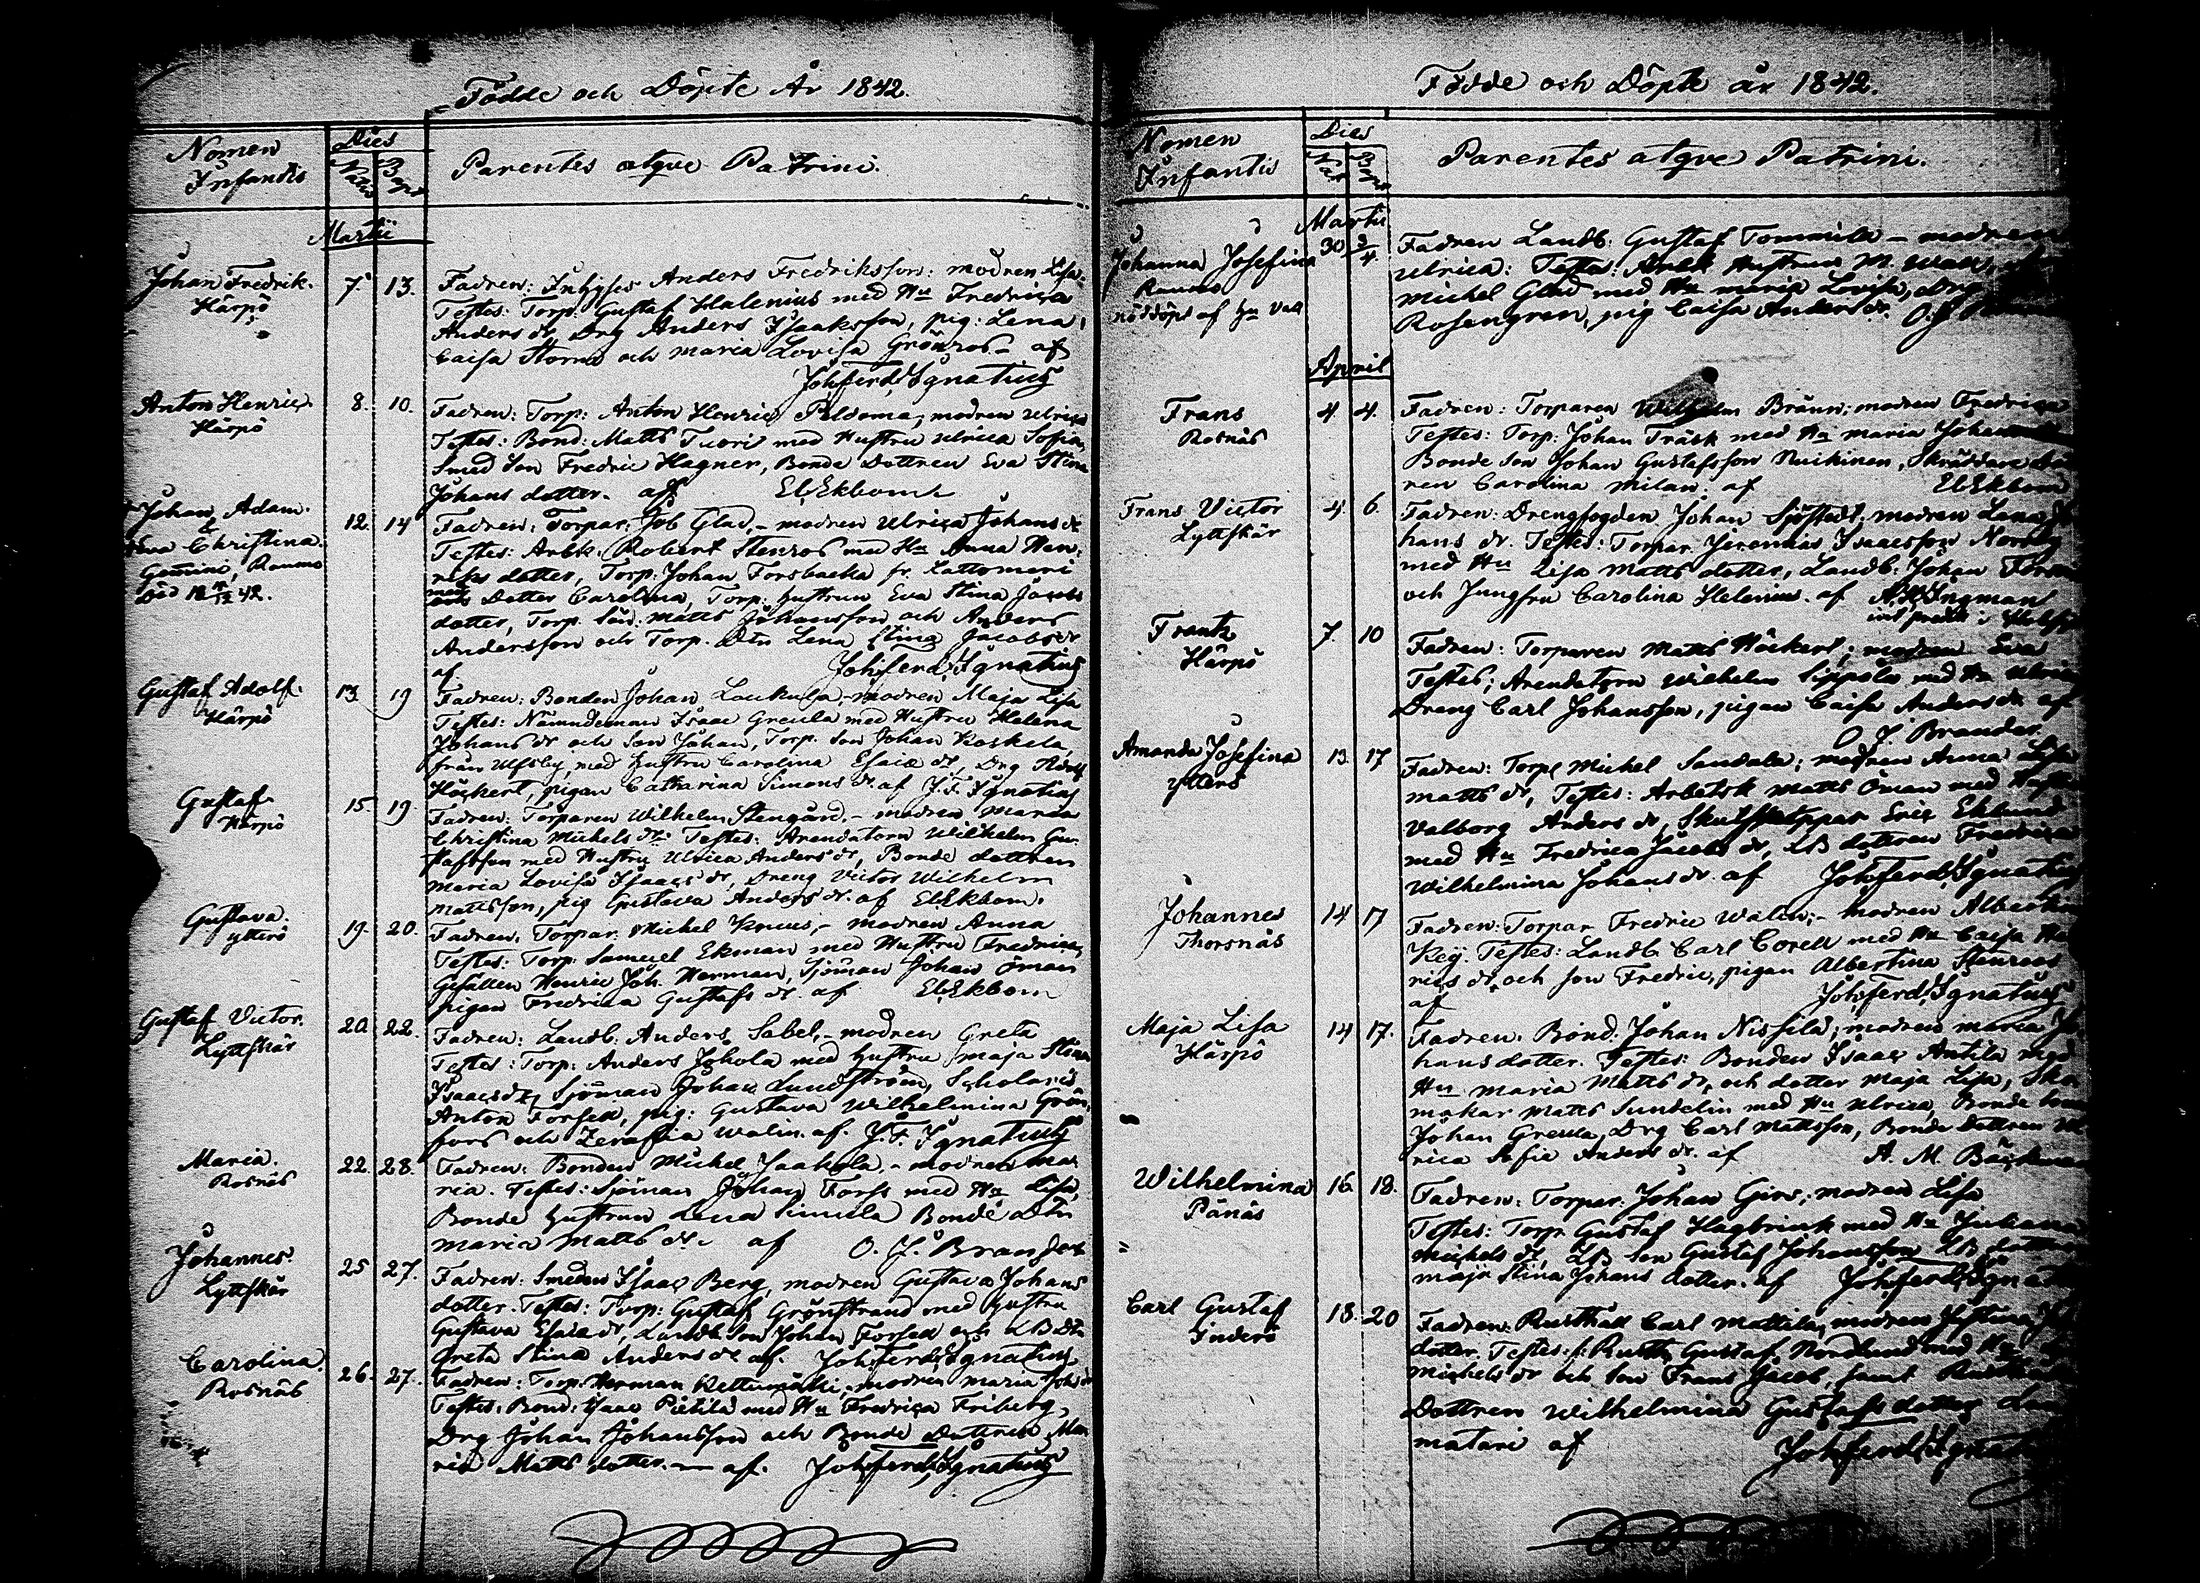 Födde och Döpte År 1842.
Nomen Infantis
Dies
Natus Bapt
Parentes atqve Patrini.
Martii
Johan Fredrik.
Härpö
7. 13.
Fadren: Inhyses Anders Fredriksson: modren Lisa
Testes: Torp: Gustaf Halenius med Hu Fredrica
Anders dr, Drg Anders Isaaksson, pig: Lena
Caisa Storm och Maria Lovisa Grönros af
Joh. Ferd. Ignatius
Anton Henric.
Härpö
8. 10.
Fadren: Torp: Anton Henric Peldoma, modren Ulrica
Testes: Bond: Matts Tuori med Hustru Ulrica Sofia,
Smed Son Fredric Hagner, Bonde Dottren Eva Stina
Johans dotter. af El. Ekbom
Johan Adam.
&
Eva Christina.
Gemini, Raumo
12. 14
Fadren: Torpar: Job Glad, - modren Ulrica Johans dr
Testes: Arbk: Robert Stenros med Hu Anna Hen-
riks dotter, Torp: Johan Forsbacka fr. Lattomeri
med Dotter Carolina, Torp: Hustrun Eva Stina Jacobs
dotter, Torp. Son: Matts Johansson och Anders
Andersson och Torp. Dtr Lena Stina Jacobs dr
af Joh. Ferd. Ignatius
Gustaf Adolf.
Härpö
13. 19
Fadren: Bonden Johan Laukula, - modren Maja Lisa
Testes: Nämndeman Isaac Greula med Hustru Helena
Johans dr och Son Johan, Torp. Son Johan Koskela,
från Ulfsby, med Hustru Carolina Esaiæ dr, Drg Adolf
Höckert, pigan Catharina Simons dr. af J. F. Ignatius
Gustaf.
Härpö
15. 19
Fadren: Torparen Wilhelm Stengård. - modren Maria
Christina Michels dr. Testes: Arendatorn Wilhelm Gu-
stafsson med Hustru Ulrica Anders dr, Bonde dottren
Maria Lovisa Isaacs dr, Dreng Victor Wilhelm
Mattsson, pig Gustava Anders dr. af El. Ekbom.
Gustava.
Ytterö
19. 20.
Fadren: Torpar: Michel Kruus, - modren Anna
Testes: Torp: Samuel Ekman med Hustru Fredrica,
Gesällen Henric Joh. Herman, Sjöman Johan Öman
pigan Fredrica Gustafs dr. af El. Ekbom
Gustaf Victor.
Lyttskär
20. 22.
Fadren: Landb: Anders Sabel, - modren Greta
Testes: Torp: Anders Johola med Hustru Maja Stina
Isaacs dr, Sjöman Johan Lundström, Scholaris
Anton Forsell, pig: Gustava Wilhelmina Grön-
fors och Zerafia Walin. af. J. F. Ignatius
Maria.
Rosnäs
22. 28.
Fadren: Bonden Michel Jaakola. - modren Ma-
ria. Testes: Sjöman Johan Forss med Hu Lisa,
Bonde Hustrun Lena Simula Bonde Dtr
Maria Matts dr. af O. J. Brander
Johannes.
Lyttskär
25 27.
Fadren: Smeden Isaac Berg, modren Gustava Johans
dotter. Testes: Torp: Gustaf Grönstrand med Hustru
Gustava Esaiæ dr, Landb. Son Johan Forsell och LB Dtr
Greta Stina Anders dr af. Joh. Ferd. Ignatius
Carolina.
Rosnäs
26. 27.
Fadren: Torp: Herman Kettumäki, modren Maria Johs dr
Testes: Bond: Isaac Pietilä med Hu Fredrica Friberg,
Drg Johan Johansson och Bonde Dottren Ma-
ria Matts dotter. — af. Joh. Ferd. Ignatius
Födde och Döpte år 1842.
Nomen Infantis
Dies
Nat Bapt
Parentes atqve Patrini.
Martii
Johanna Josefina
Raumo
nöddöpt af Hu Vall
30 3/4
Fadren Landb: Gustaf Tommila - modren
Ulrica: Testes: Arbk Hustrun M. Wall,
Michel Glad med Hu Maria Lovisa, Drg
Rosengren, pig Caisa Anders dr. O. J.
April
Frans
Rosnäs
4. 4.
Fadren: Torparen Wilhelm Brunn; modren Fredrica
Testes: Torp: Johan Träsk med Hu Maria
Bonde Son Johan Gustafsson Nuikinen, Skräddare
ren Carolina Milan: af El. Ekbom
Frans Victor
Lyttskär
4. 6.
Fadren: Drengfogden Johan Sjöstedt. modren Lena Jo-
hans dr. Testes: Torpar Jeremias Isaacsson Norrby
med Hu Lisa Matts dotter, Landb: Johan
och Jungfru Carolina Helenius. af A. W. Ingman
Frantz
Härpö
7. 10
Fadren: Torparen Matts Höckert; modren Eva
Testes; Arendatorn Wilhelm Sippola med Hu Ulrica
Dreng Carl Johansson, pigan Caisa Anders dr af
O. J. Brander
Amanda Josefina
Ytterö
13. 17
Fadren: Torp: Michel Sandala; modren Anna Lisa
Matts dr, Testes: Arbetsk Matts Öman med Hustru
Valborg Anders dr, Skutskeppar Eric Eklund
med Hu Fredrica Jacobs dr, LB dottren Fredrica
Wilhelmina Johans dr. af Joh. Ferd. Ignatius
Johannes
Thorsnäs
14 17
Fadren: Torpar Fredric Walin; - modren Albertina
Keij. Testes: Landb Carl Corell med Hu Caisa Hen-
rics dr, och son Fredric, pigan Albertina Stenroos
af Joh. Ferd. Ignatius
Maja Lisa
Härpö
14 17.
Fadren: Bond: Johan Nissilä; modren Maria Jo-
hans dotter. Testes: Bonden Isaac Antila med
Hu Maria Matts dr, och dotter Maja Lisa, Sko-
makar Matts Sundelin med Hu Ulrica, Bonde Son
Johan Greula, Drg Carl Mattsson, Bonde Dottren Ul-
rica Sofia Anders dr. af A. M. Bäckman
Wilhelmina
Pänäs
16. 18.
Fadren: Torpar: Johan Girs; modren Lisa
Testes: Torp Gustaf Hagbrink med Hu Juliana
Michels dr, LB Son Gustaf Johansson LB dottren
Maja Stina Johans dotter. af Joh. Ferd. Ignatius
Carl Gustaf
Inderö
18. 20
Fadren: Rusthåll Carl Mattila, modren Justina
dotter. Testes: f: Rusth Gustaf Nordlund med Hu
Michels dr och Son Frans Jacob, samt
Dottren Wilhelmina Gustafs dotter
matari af Joh. Ferd. Ignatius